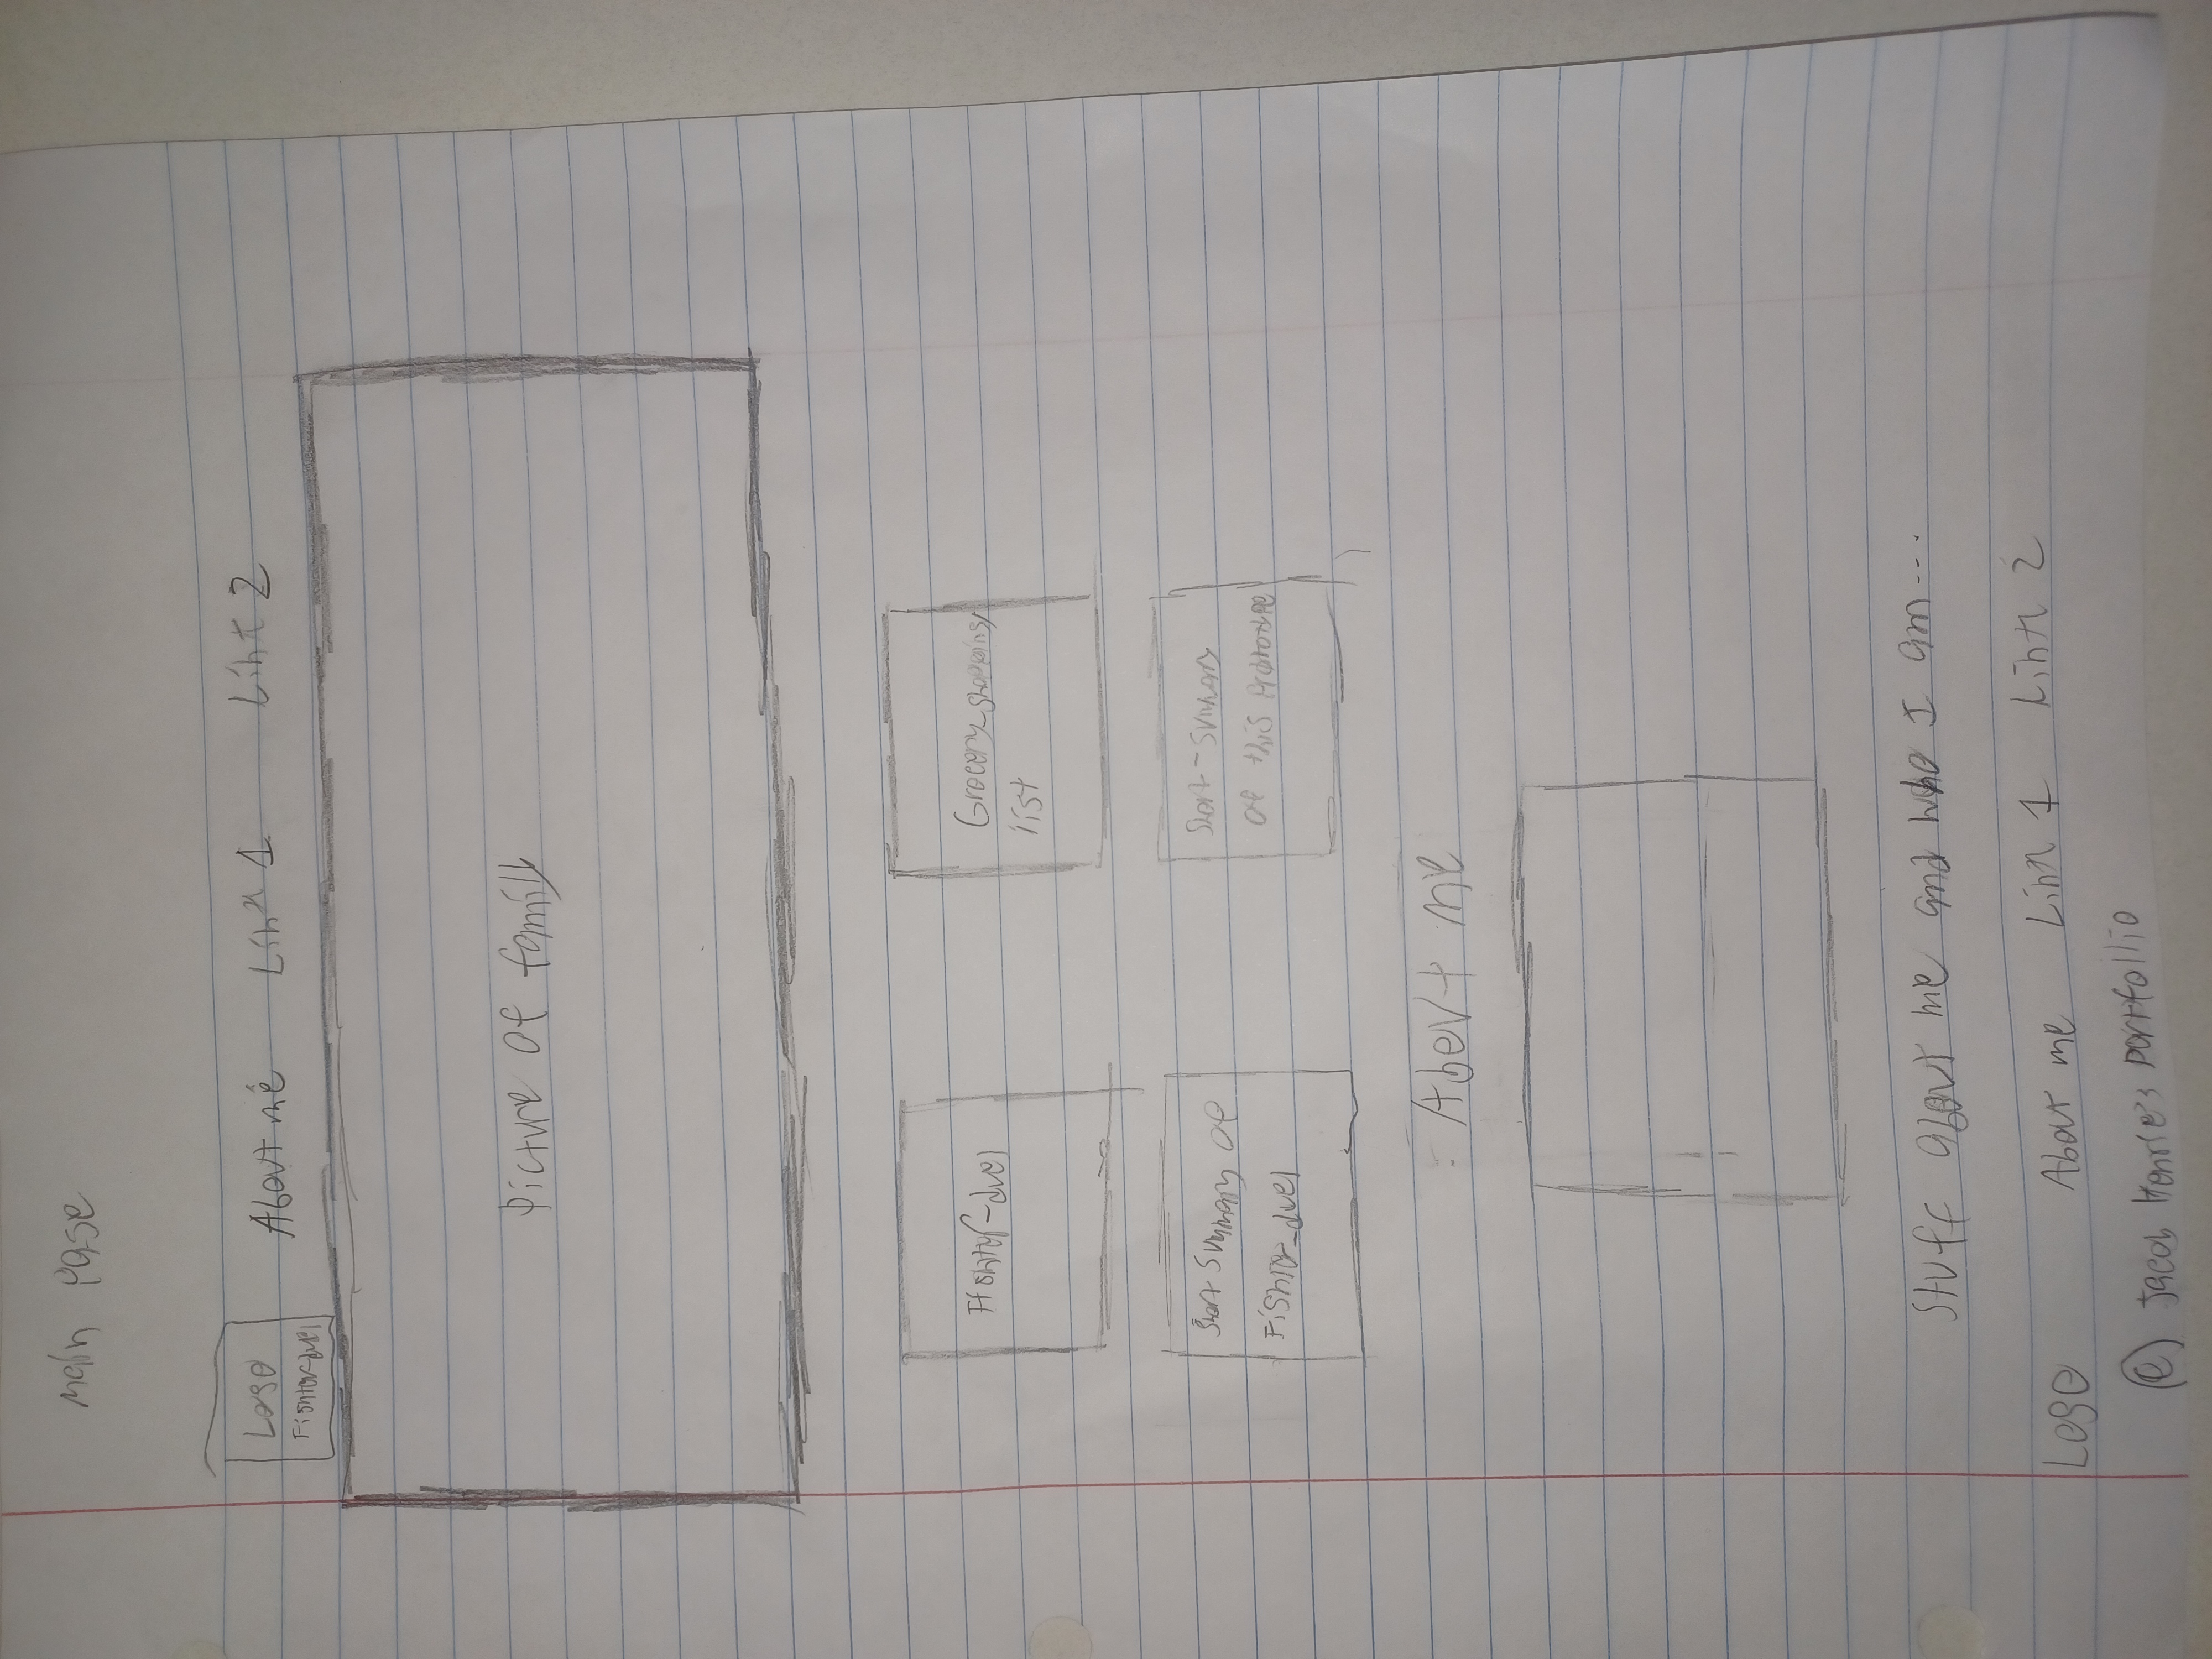 Main Page
Logo
Fighter-duel
About me Link 1 Link 2
Picture of family
Fighter-duel Grocery-shopping
list
Short Summary of Short-Summary
Fighter-duel of this Prototype
About me
Stuff about me and who I am...
Logo About me Link 1 Link 2
© Jacob Henrie's portfollio